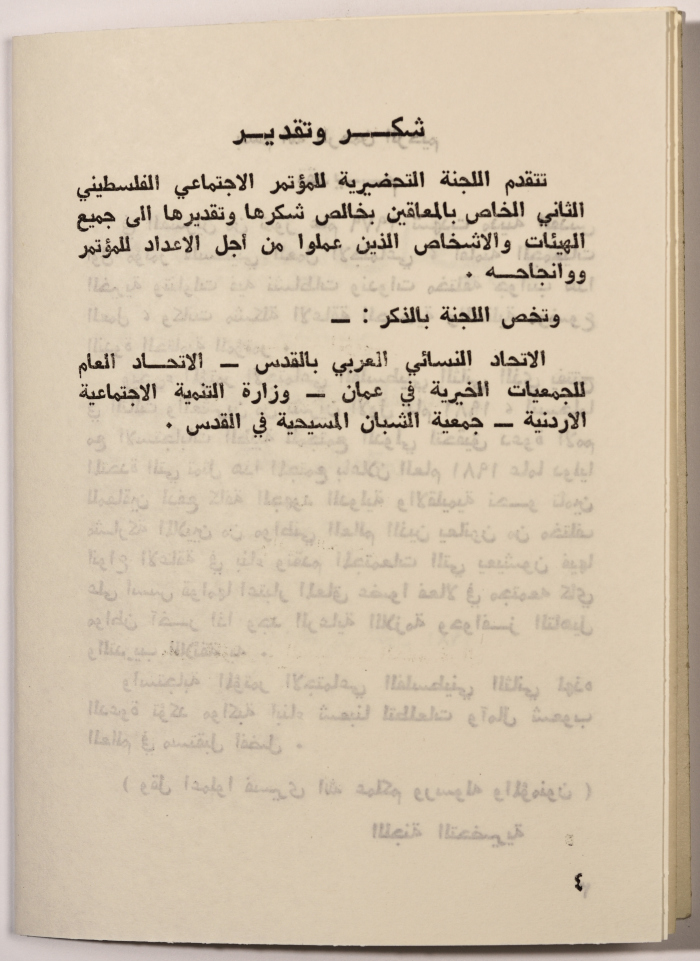 شكـــر وتقديـر
تتقدم اللجنة التحضيرية للمؤتمر الاجتماعي الفلسطيني
الثاني الخاص بالمعاقين بخالص شكرها وتقديرها الى جميع
الهيئات والاشخاص الذين عملوا من أجل الاعداد للمؤتمر
ووانجاحـــه .
وتخص اللجنة بالذكر : ــ
الاتحاد النسائي العربي بالقدس ــ الاتحـــاد العام
للجمعيات الخيرية في عمان ــ وزارة التنمية الاجتماعية
الاردنية ــ جمعية الشبان المسيحية في القدس .
٤